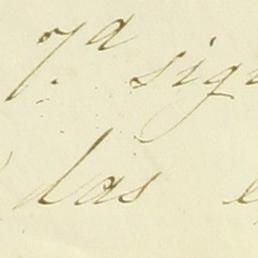 7.ª sig
las